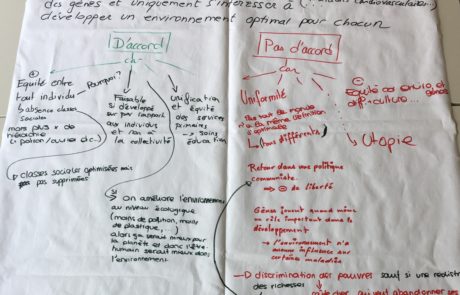 des gènes et uniquement s'intéresser à (
développer un environnement optimal pour chacun
D'accord
car
Équité entre
tout individu
Pourquoi?
absence classes
sociales
mais plus de
hiérarchie
→ classes sociales optimisées mais
pas supprimées
Faisable
si développé
sur par rapport
aux individus
et non à
la collectivité
Unification
et équité
des services
primaires
→ soins
éducation
Si
on améliore l'environnement
au niveau écologique
(moins de pollution, moins
de plastique, ...)
alors ça serait mieux pour
la planète et donc l'être
humain serait mieux dans
l'environnement
Pas d'accord
car
Uniformité
tout le monde
n'a la même définition
d'optimale
tous différents
Équité
difficulté...
→ Utopie
Retour dans une politique
communiste
→ ⊖ de liberté
Gènes jouent quand même
un rôle important dans le
développement
→ l'environnement n'a
aucune influence sur
certaines maladies
→ discrimination des pauvres sauf si une
des richesses
qui veut abandonner ses